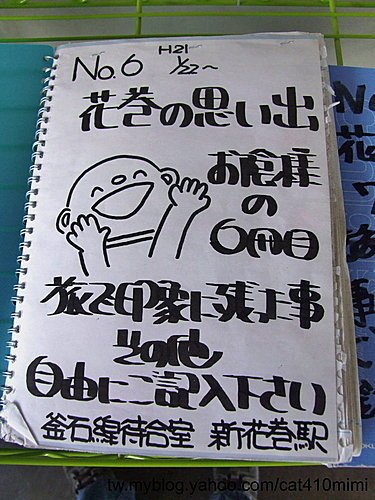 No.6 H21 1/22~
花巻の思い出
お倉庫
の
6冊目
旅で印象に残た事
その他
自由にご記入下さい
釜石線待合室 新花巻駅
No
花
tw.myblog.yahoo.com/cat410mimi